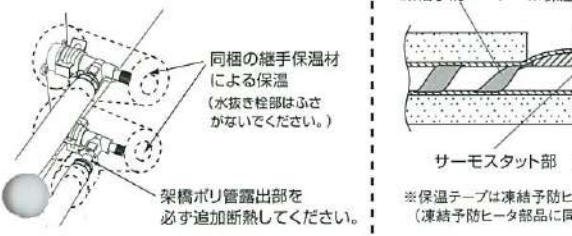 同梱の継手保温材
による保温
(水抜き栓部はふさ
がないでください。)
架橋ポリ管露出部を
必ず追加断熱してください。
サーモスタット部
※保温テープは凍結予防ヒ
(凍結予防ヒータ部品に同